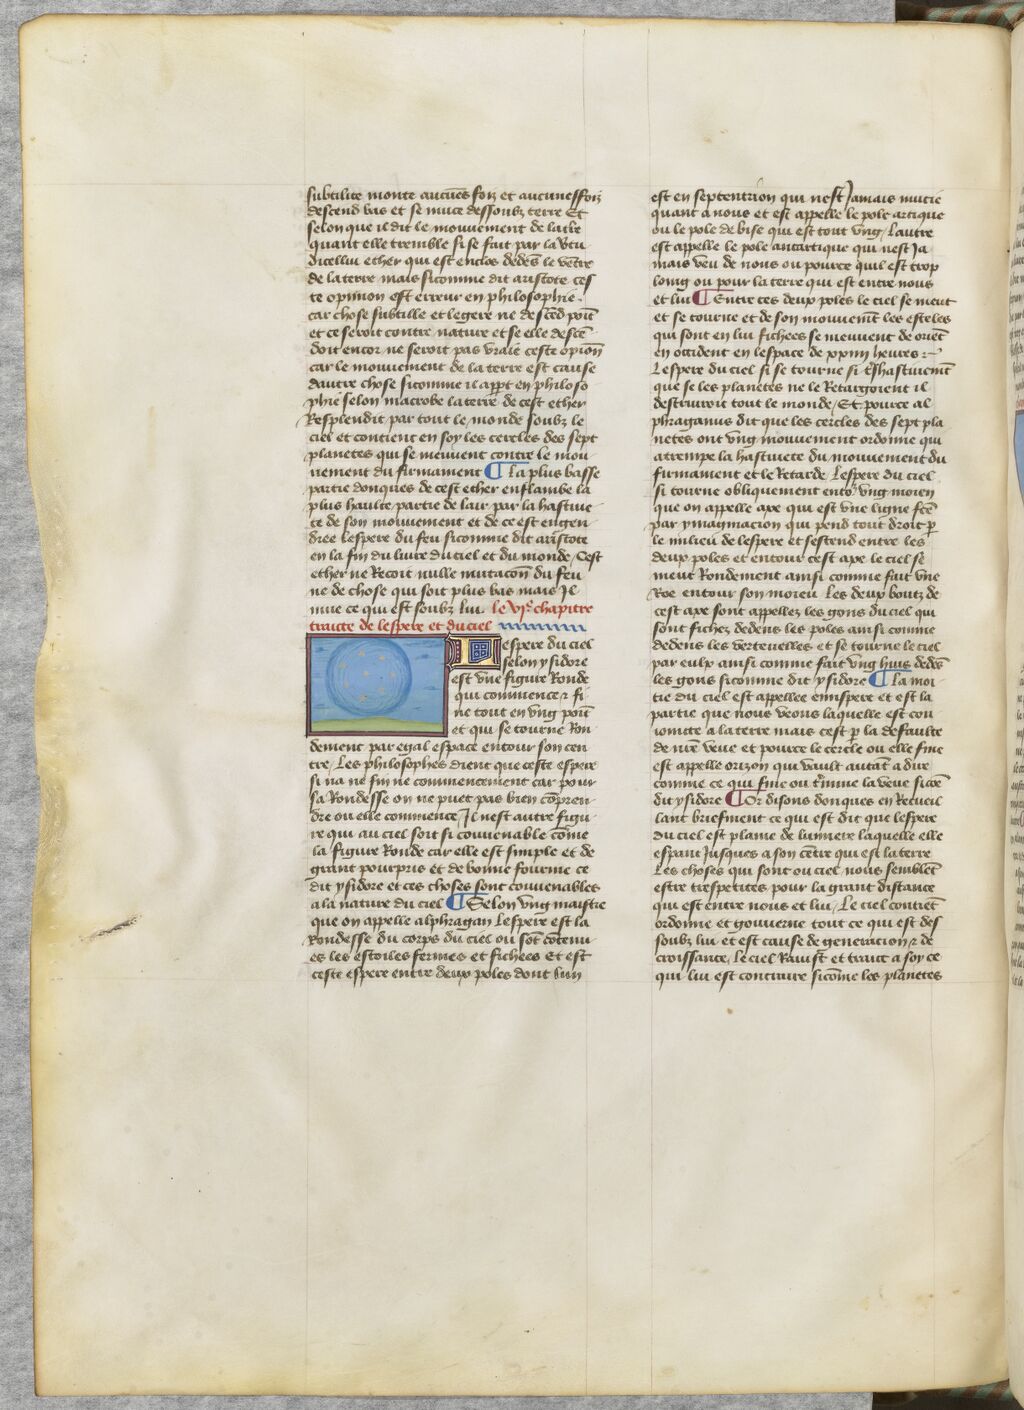 subtilite monte aucunes foiz et aucuneffoiz
descend bas et se muce dessoubz terre Et
selon que il dit le mouuement de la terre
quant elle tremble si se fait par la vertu
dicellui ether qui est enclos dedẽs le vẽtre
de la terre mais sicomme dit aristote ces
te opinion est erreur en philosophie
car chose subtille et legere ne descẽd poĩt
et ce seroit contre nature et se elle descẽ
doit encor ne seroit pas vraie ceste opinoñ
car le mouuement de la terre est cause
dautre chose sicomme il appt en philoso
phie selon macrobe la terre de cest ether
Resplendit par tout le monde soubz le
ciel et contient en soy les cercles des sept
planetes qui se meuuent contre le mou
uement du firmament ¶ La plus basse
partie donques de cest ether enflambe la
plus haulte partie de lair par la hastiue
te de son mouuement et de ce est engen
dree lespere du feu sicomme dit aristote
en la fin du liure du ciel et du monde / Cest
ether ne Recoit nulle mutacoñ du feu
ne de chose qui soit plus bas mais Il
mue ce qui est soubz lui le vje chapitre
traicte de lespere et du ciel
Lespere du ciel
selon ysidore
est vne figure Ronde
qui commence ⁊ fi
ne tout en vng poĩt
et qui se tourne Ron
dement par egal espace entour son cen
tre / Les philosophes dient que ceste espere
si na ne fin ne commencement car pour
sa Rondesse on ne puet pas bien cõpren
dre ou elle commence / Il nest autre figu
re qui au ciel soit si couuenable cõme
la figure Ronde car elle est simple et de
grant pourpris et de bonne fourme ce
dit ysidore et ces choses sont couuenables
a la nature du ciel ¶ Selon vng maistre
que on appelle alphragan Lespere est la
Rondesse du corps du ciel ou sõt cõtenu
es les estoiles fermes et fichees Et est
ceste espere entre deux poles dont lun
est en septentrion qui nest Jamais mucie
quant a nous et est appelle le pole artique
ou le pole de bise qui est tout vng / Lautre
est appelle le pole antartique qui nest Ja
mais veu de nous ou pource quil est trop
loing ou pour la terre qui est entre nous
et lui ¶ Entre ces deux poles le ciel se meut
et se tourne et de son mouuemẽt les esteles
qui sont en lui fichees se meuuent de oriẽt
en occident en lespace de xxiiij heures
Lespere du ciel si se tourne si t͛shastiuemẽt
que se les planetes ne le Retargoient il
destruiroit tout le monde / Et pource al
phraganus dit que les cercles des sept pla
netes ont vng mouuement ordonne qui
atrempe la hastiuete du mouuement du
firmament et le Retarde / Lespere du ciel
si tourne obliquement ento͛ vng moien
que on appelle axe qui est vne ligne fc̃e
par ymaginacion qui pend tout droit ꝑ
le milieu de lespere et sestend entre les
deux poles et entour cest axe le ciel se
meut Rondement ainsi comme fait vne
Roe entour son moieu Les deux boutz de
cest axe sont appellez les gons du ciel qui
sont fichez dedens les poles ainsi comme
dedens les verteuelles et se tourne le ciel
par eulx ainsi comme fait vng huis dedẽs
les gons sicomme dit ysidore ¶ La moi
tie du ciel est appellee emispere et est la
partie que nous veons laquelle est con
iointe a la terre mais cest ꝑ la defaulte
de nr̃e veue et pource le cercle ou elle fine
est appelle orizon qui vault autãt a dire
comme ce qui fine ou t͛mine la veue sicõe
dit ysidore ¶ Or disons donques en Recueil
lant briefment ce qui est dit que lespere
du ciel est plaine de lumiere laquelle elle
espant Jusques a son cẽtre qui est la terre
Les choses qui sont ou ciel nous semblẽt
estre trespetites pour la grant distance
qui est entre nous et lui / Le ciel contiẽt
ordonne et gouuerne tout ce qui est des
soubz lui et est cause de generacion ⁊ de
croissance / Le ciel Rauist et traict a soy ce
qui lui est contraire sicõme les planetes